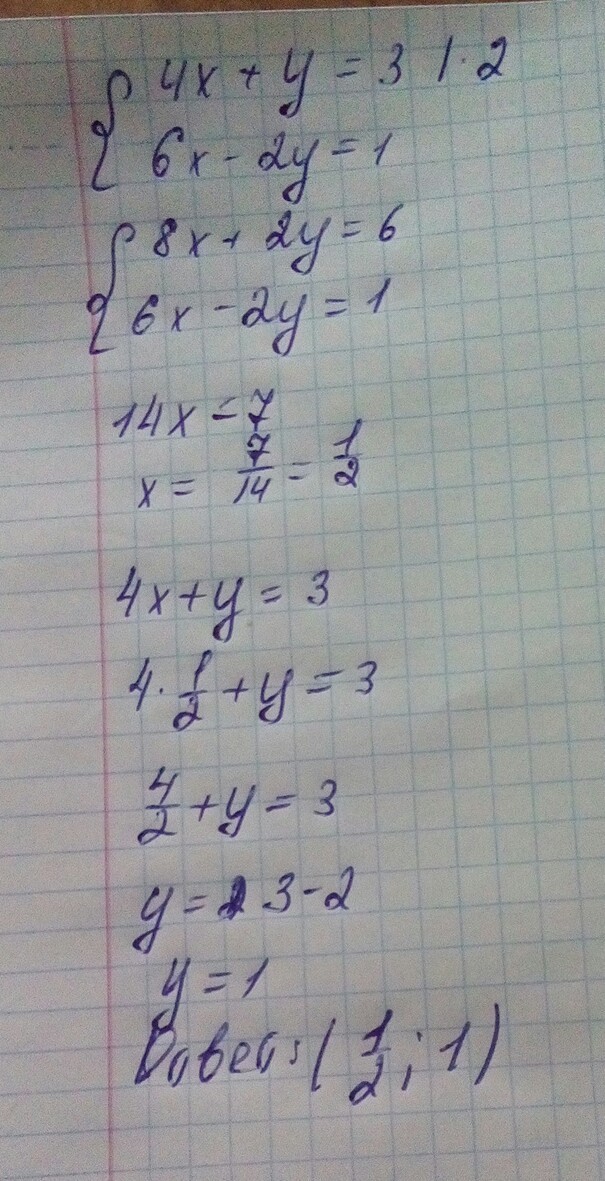 4x + y = 3 | · 2
6x - 2y = 1
8x + 2y = 6
6x - 2y = 1
14x = 7
x = 7/14 = 1/2
4x + y = 3
4 · 1/2 + y = 3
4/2 + y = 3
y = 3 - 2
y = 1
Ответ: (1/2; 1)